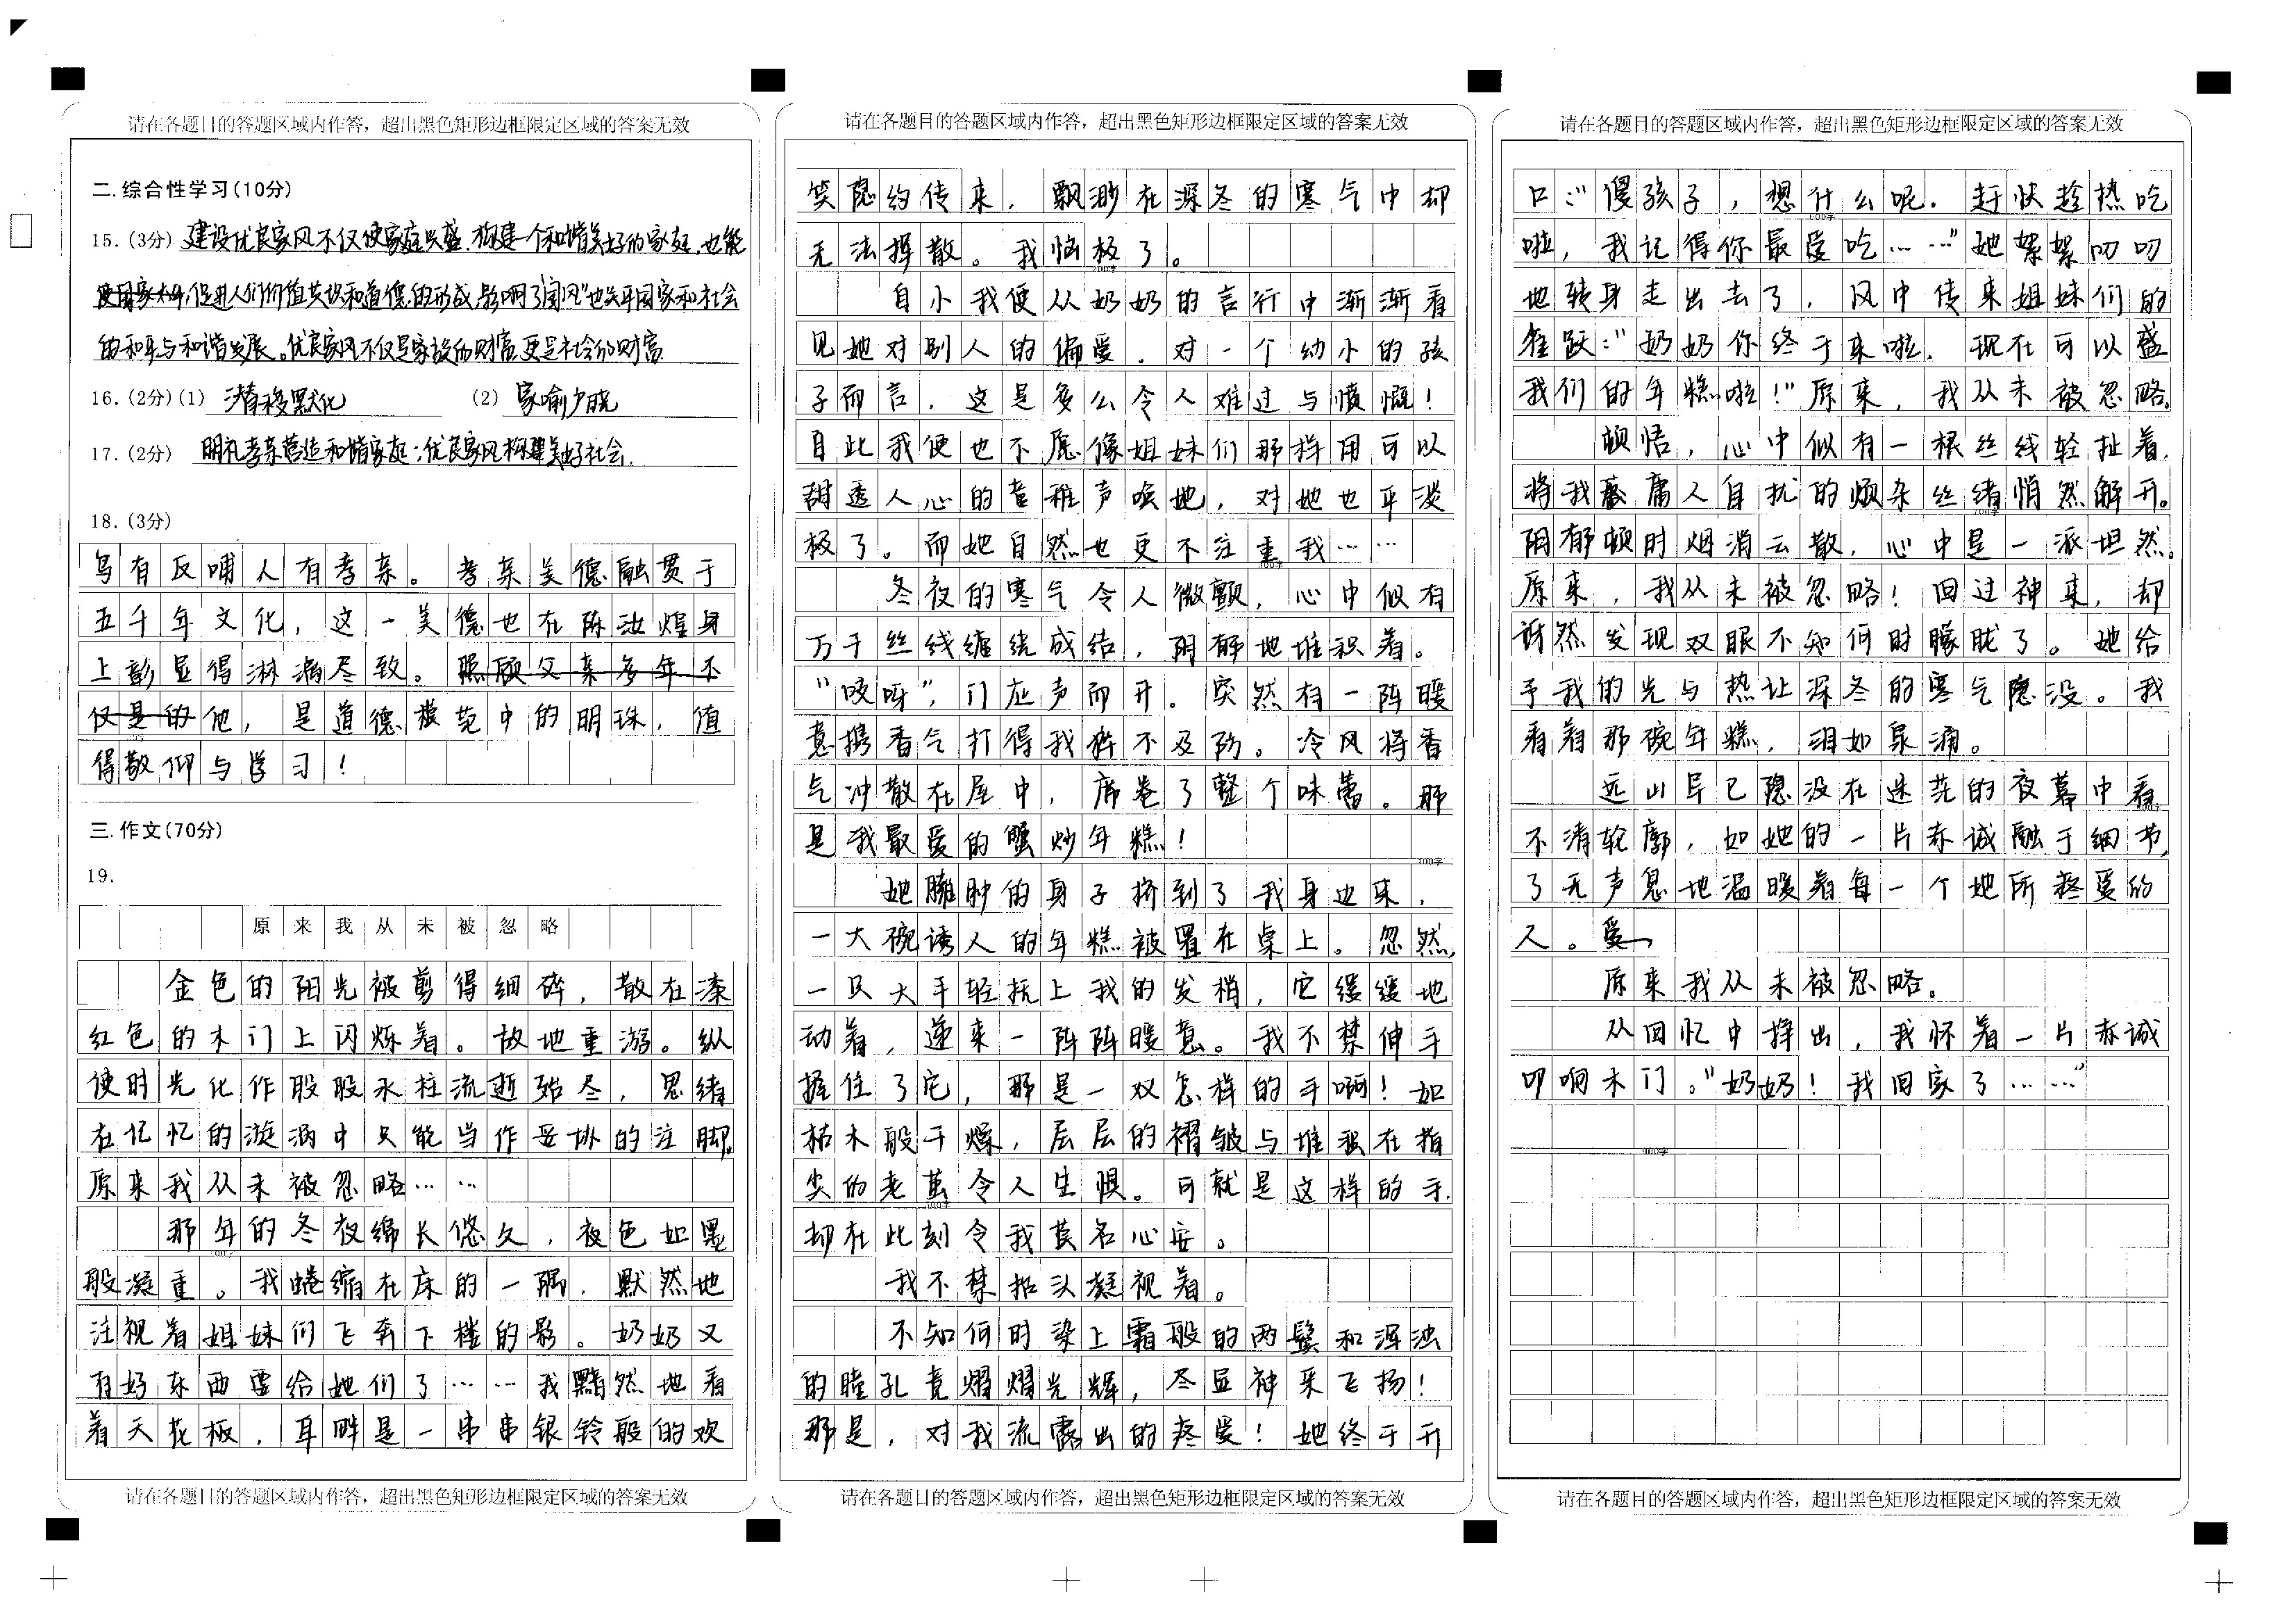 请在各题目的答题区域内作答，超出黑色矩形边框限定区域的答案无效
二.综合性学习(10分)
15.(3分) 建设优良家风不仅使家庭兴盛、构建一个和谐美好的家庭,也能
促进人们价值共识和道德的形成,影响了国风"也关乎国家和社会
的和平与和谐发展。优良家风不仅是家族的财富,更是社会的财富
16.(2分)(1) 潜移默化 (2) 家喻户晓
17.(2分) 明礼孝亲营造和谐家庭;优良家风构建美好社会.
18.(3分)
乌有反哺人有孝亲。孝亲美德融贯于
五千年文化，这一美德也在陈汝煌身
上彰显得淋漓尽致。照顾父亲多年不
仅是的他，是道德模范中的明珠，值
得敬仰与学习！
三.作文(70分)
19.
原来我从未被忽略
金色的阳光被剪得细碎，散在漆
红色的木门上闪烁着。故地重游。纵
使时光化作股股水柱流逝殆尽，思绪
在记忆的漩涡中只能当作妥协的注脚。
原来我从未被忽略……
那年的冬夜绵长悠久，夜色如墨
般凝重。我蜷缩在床的一隅，默然地
注视着姐妹们飞奔下楼的影。奶奶又
有好东西要给她们了……我黯然地看
着天花板，耳畔是一串串银铃般的欢
请在各题目的答题区域内作答，超出黑色矩形边框限定区域的答案无效
请在各题目的答题区域内作答，超出黑色矩形边框限定区域的答案无效
笑隐约传来，飘渺在深冬的寒气中却
无法挥散。我恼极了。
自小我便从奶奶的言行中渐渐看
见她对别人的偏爱，对一个幼小的孩
子而言，这是多么令人难过与愤慨！
自此我便也不愿像姐妹们那样用可以
甜透人心的童稚声唤她，对她也平淡
极了。而她自然也更不注重我……
冬夜的寒气令人微颤，心中似有
万千丝线缠绕成结，阴郁地堆积着。
“咬呀”，门应声而开。突然有一阵暖
意携香气打得我猝不及防。冷风将香
气冲散在屋中，席卷了整个味蕾。那
是我最爱的蟹炒年糕！
她臃肿的身子挤到了我身边来，
一大碗诱人的年糕被置在桌上。忽然，
一只大手轻抚上我的发梢，它缓缓地
动着，递来一阵阵暖意。我不禁伸手
握住了它，那是一双怎样的手啊！如
枯木般干燥，层层的褶皱与堆积在指
尖的老茧令人生惧。可就是这样的手，
却在此刻令我莫名心安。
我不禁抬头凝视着。
不知何时染上霜般的两鬓和浑浊
的瞳孔竟熠熠光辉，尽显神采飞扬！
那是，对我流露出的疼爱！她终于开
请在各题目的答题区域内作答，超出黑色矩形边框限定区域的答案无效
请在各题目的答题区域内作答，超出黑色矩形边框限定区域的答案无效
口：“傻孩子，想什么呢。赶快趁热吃
啦，我记得你最爱吃……”她絮絮叨叨
地转身走出去了，风中传来姐妹们的
雀跃：“奶奶你终于来啦，现在可以盛
我们的年糕啦！”原来，我从未被忽略。
顿悟，心中似有一根丝线轻扯着，
将我庸人自扰的烦杂丝绪悄然解开。
阴郁顿时烟消云散，心中是一派坦然。
原来，我从未被忽略！回过神来，却
讶然发现双眼不知何时朦胧了。她给
予我的光与热让深冬的寒气隐没。我
看着那碗年糕，泪如泉涌。
远山早已隐没在迷茫的夜幕中看
不清轮廓，如她的一片赤诚融于细节，
了无声息地温暖着每一个她所疼爱的
人。爱
原来我从未被忽略。
从回忆中挣出，我怀着一片赤诚
叩响木门。“奶奶！我回家了……”
请在各题目的答题区域内作答，超出黑色矩形边框限定区域的答案无效